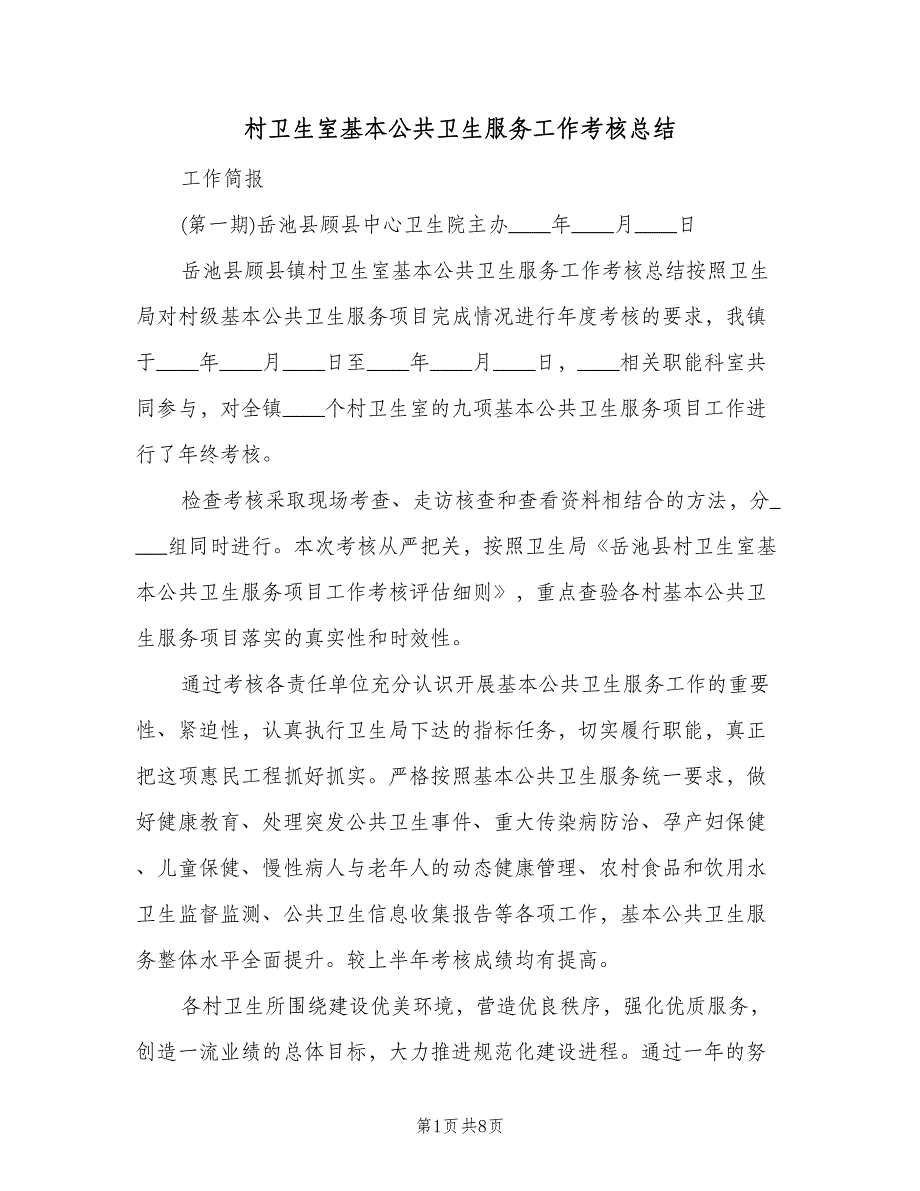 村卫生室基本公共卫生服务工作考核总结
工作简报
(第一期)岳池县顾县中心卫生院主办____年____月____日
岳池县顾县镇村卫生室基本公共卫生服务工作考核总结按照卫生
局对村级基本公共卫生服务项目完成情况进行年度考核的要求，我镇
于____年____月____日至____年____月____日，____相关职能科室共
同参与，对全镇____个村卫生室的九项基本公共卫生服务项目工作进
行了年终考核。
检查考核采取现场考查、走访核查和查看资料相结合的方法，分_
___组同时进行。本次考核从严把关，按照卫生局《岳池县村卫生室基
本公共卫生服务项目工作考核评估细则》，重点查验各村基本公共卫
生服务项目落实的真实性和时效性。
通过考核各责任单位充分认识开展基本公共卫生服务工作的重要
性、紧迫性，认真执行卫生局下达的指标任务，切实履行职能，真正
把这项惠民工程抓好抓实。严格按照基本公共卫生服务统一要求，做
好健康教育、处理突发公共卫生事件、重大传染病防治、孕产妇保健
、儿童保健、慢性病人与老年人的动态健康管理、农村食品和饮用水
卫生监督监测、公共卫生信息收集报告等各项工作，基本公共卫生服
务整体水平全面提升。较上半年考核成绩均有提高。
各村卫生所围绕建设优美环境，营造优良秩序，强化优质服务，
创造一流业绩的总体目标，大力推进规范化建设进程。通过一年的努
第1页 共8页